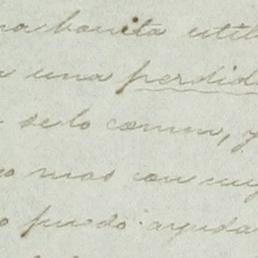 na bonita util
una perdid
de lo comun, y
mas con
puedo ayuda